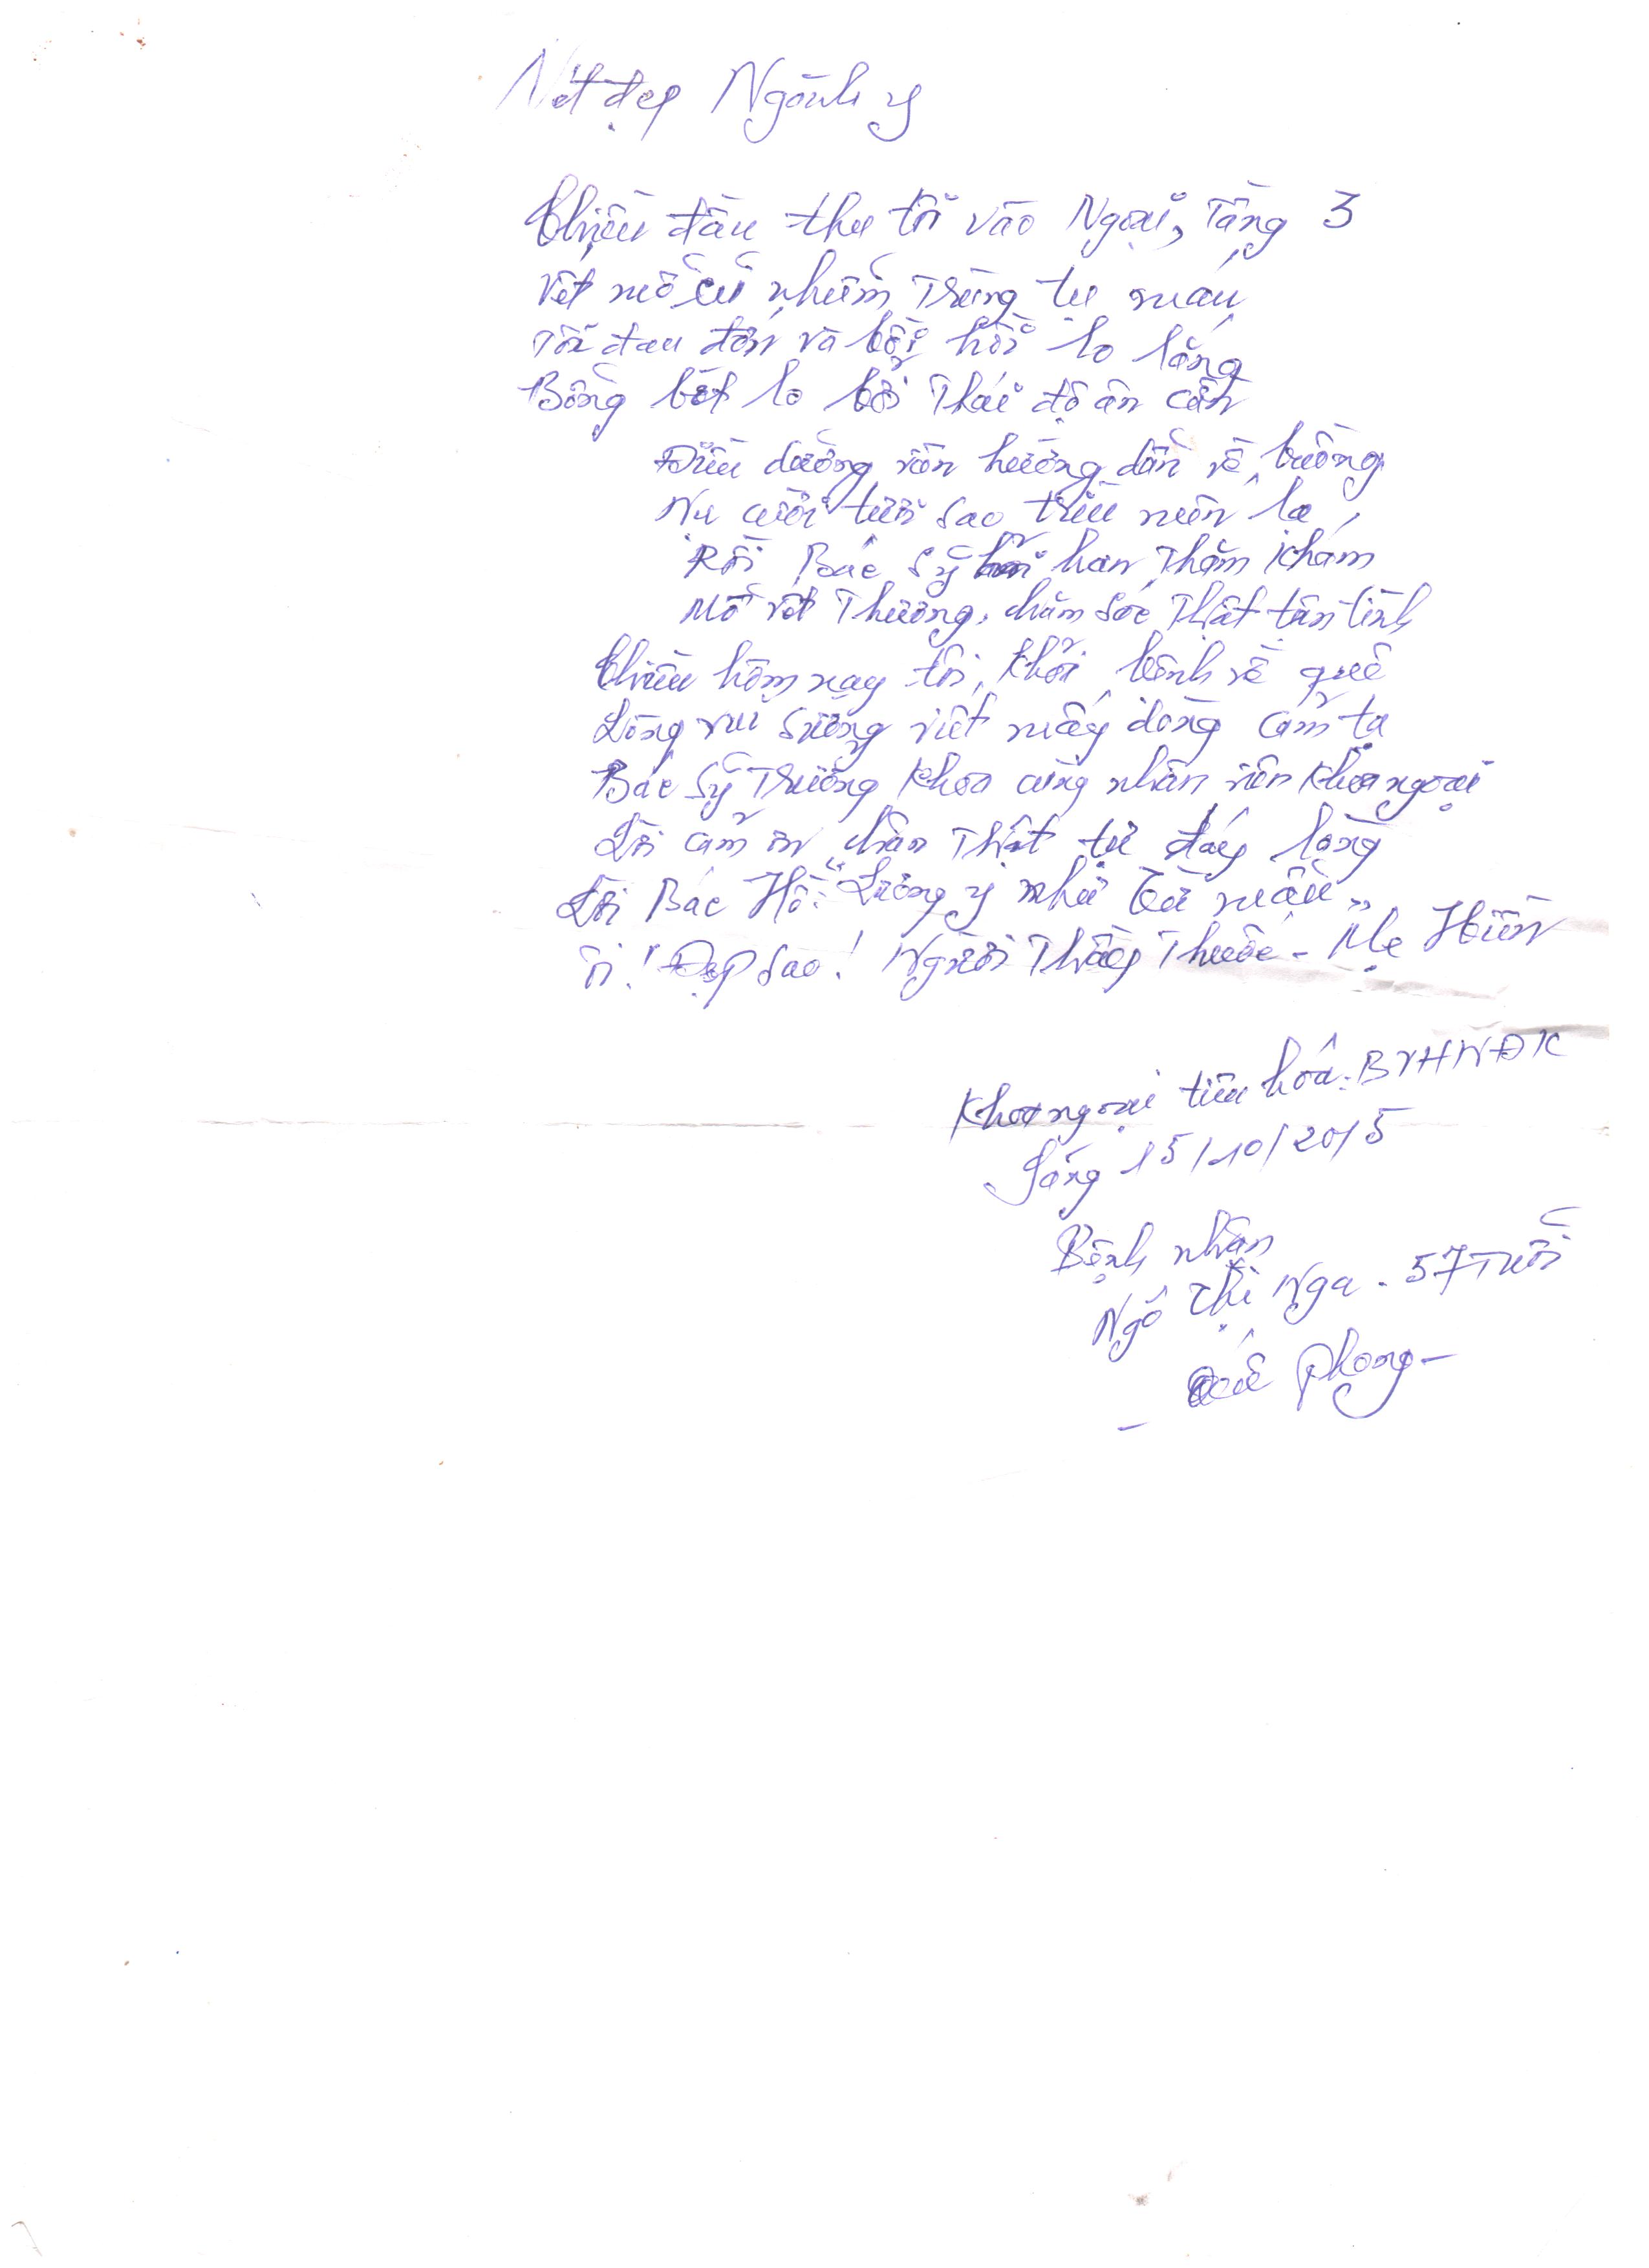 Nét đẹp Ngành y
Chiều đầu thu tôi vào Ngoại, Tầng 3
Vết mổ cũ nhiễm Trùng tụ máu
Tôi đau đớn và bồi hồi lo lắng
Bỗng bớt lo bởi Thái độ ân cần
Điều dưỡng viên hướng dẫn về buồng
Nụ cười tươi sao trìu mến lạ
Rồi Bác Sỹ hỏi han Thăm khám
Mổ vết Thương, chăm sóc Thật tận tình
Chiều hôm nay tôi, khỏi bệnh về quê
Lòng vui sướng viết mấy dòng cảm tạ
Bác Sỹ Trưởng khoa cùng nhân viên khoa ngoại
Lời cảm ơn chân Thật từ đáy lòng
Lời Bác Hồ: "Lương y như từ mẫu"
Ôi! Đẹp sao! Người Thầy Thuốc - Mẹ Hiền
Khoa ngoại tiêu hóa. BVHNĐK
Sáng 15/10/2015
Bệnh nhân
Ngô Thị Nga - 57 Tuổi
- Quế Phong -